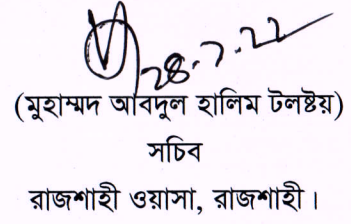 ২৪.৭.২২
(মুহাম্মদ আবদুল হালিম টলষ্টয়)
সচিব
রাজশাহী ওয়াসা, রাজশাহী।